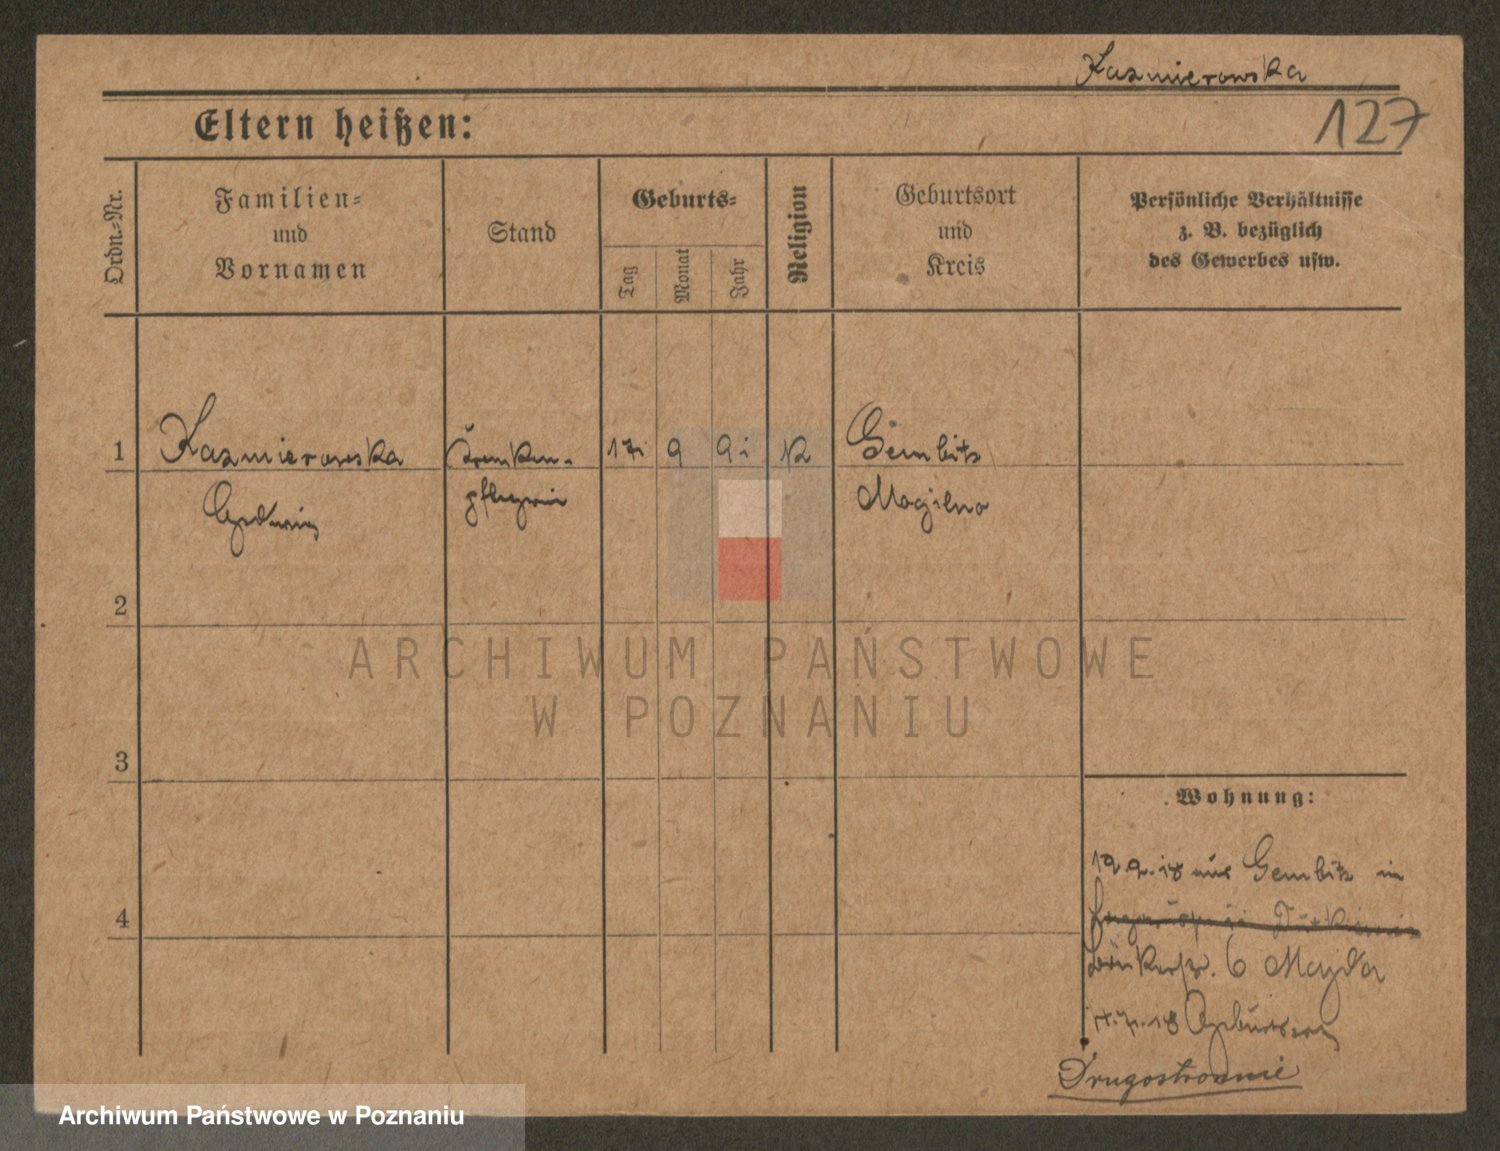 Kazmierowska
127
Eltern heißen:
Ordn.-Nr.
Familien-
und
Vornamen
Stand
Geburts-
Tag
Monat
Jahr
Religion
Geburtsort
und
Kreis
Persönliche Verhältnisse
z. B. bezüglich
des Gewerbes usw.
1
Kazmierowska
Kranken-
9
K
Gembitz
Hedwig
pflegerin
Mogilno
2
ARCHIWUM PAŃSTWOWE
W POZNANIU
3
Wohnung:
aus Gembitz in
4
6 Majda
Drugostronnie
Archiwum Państwowe w Poznaniu